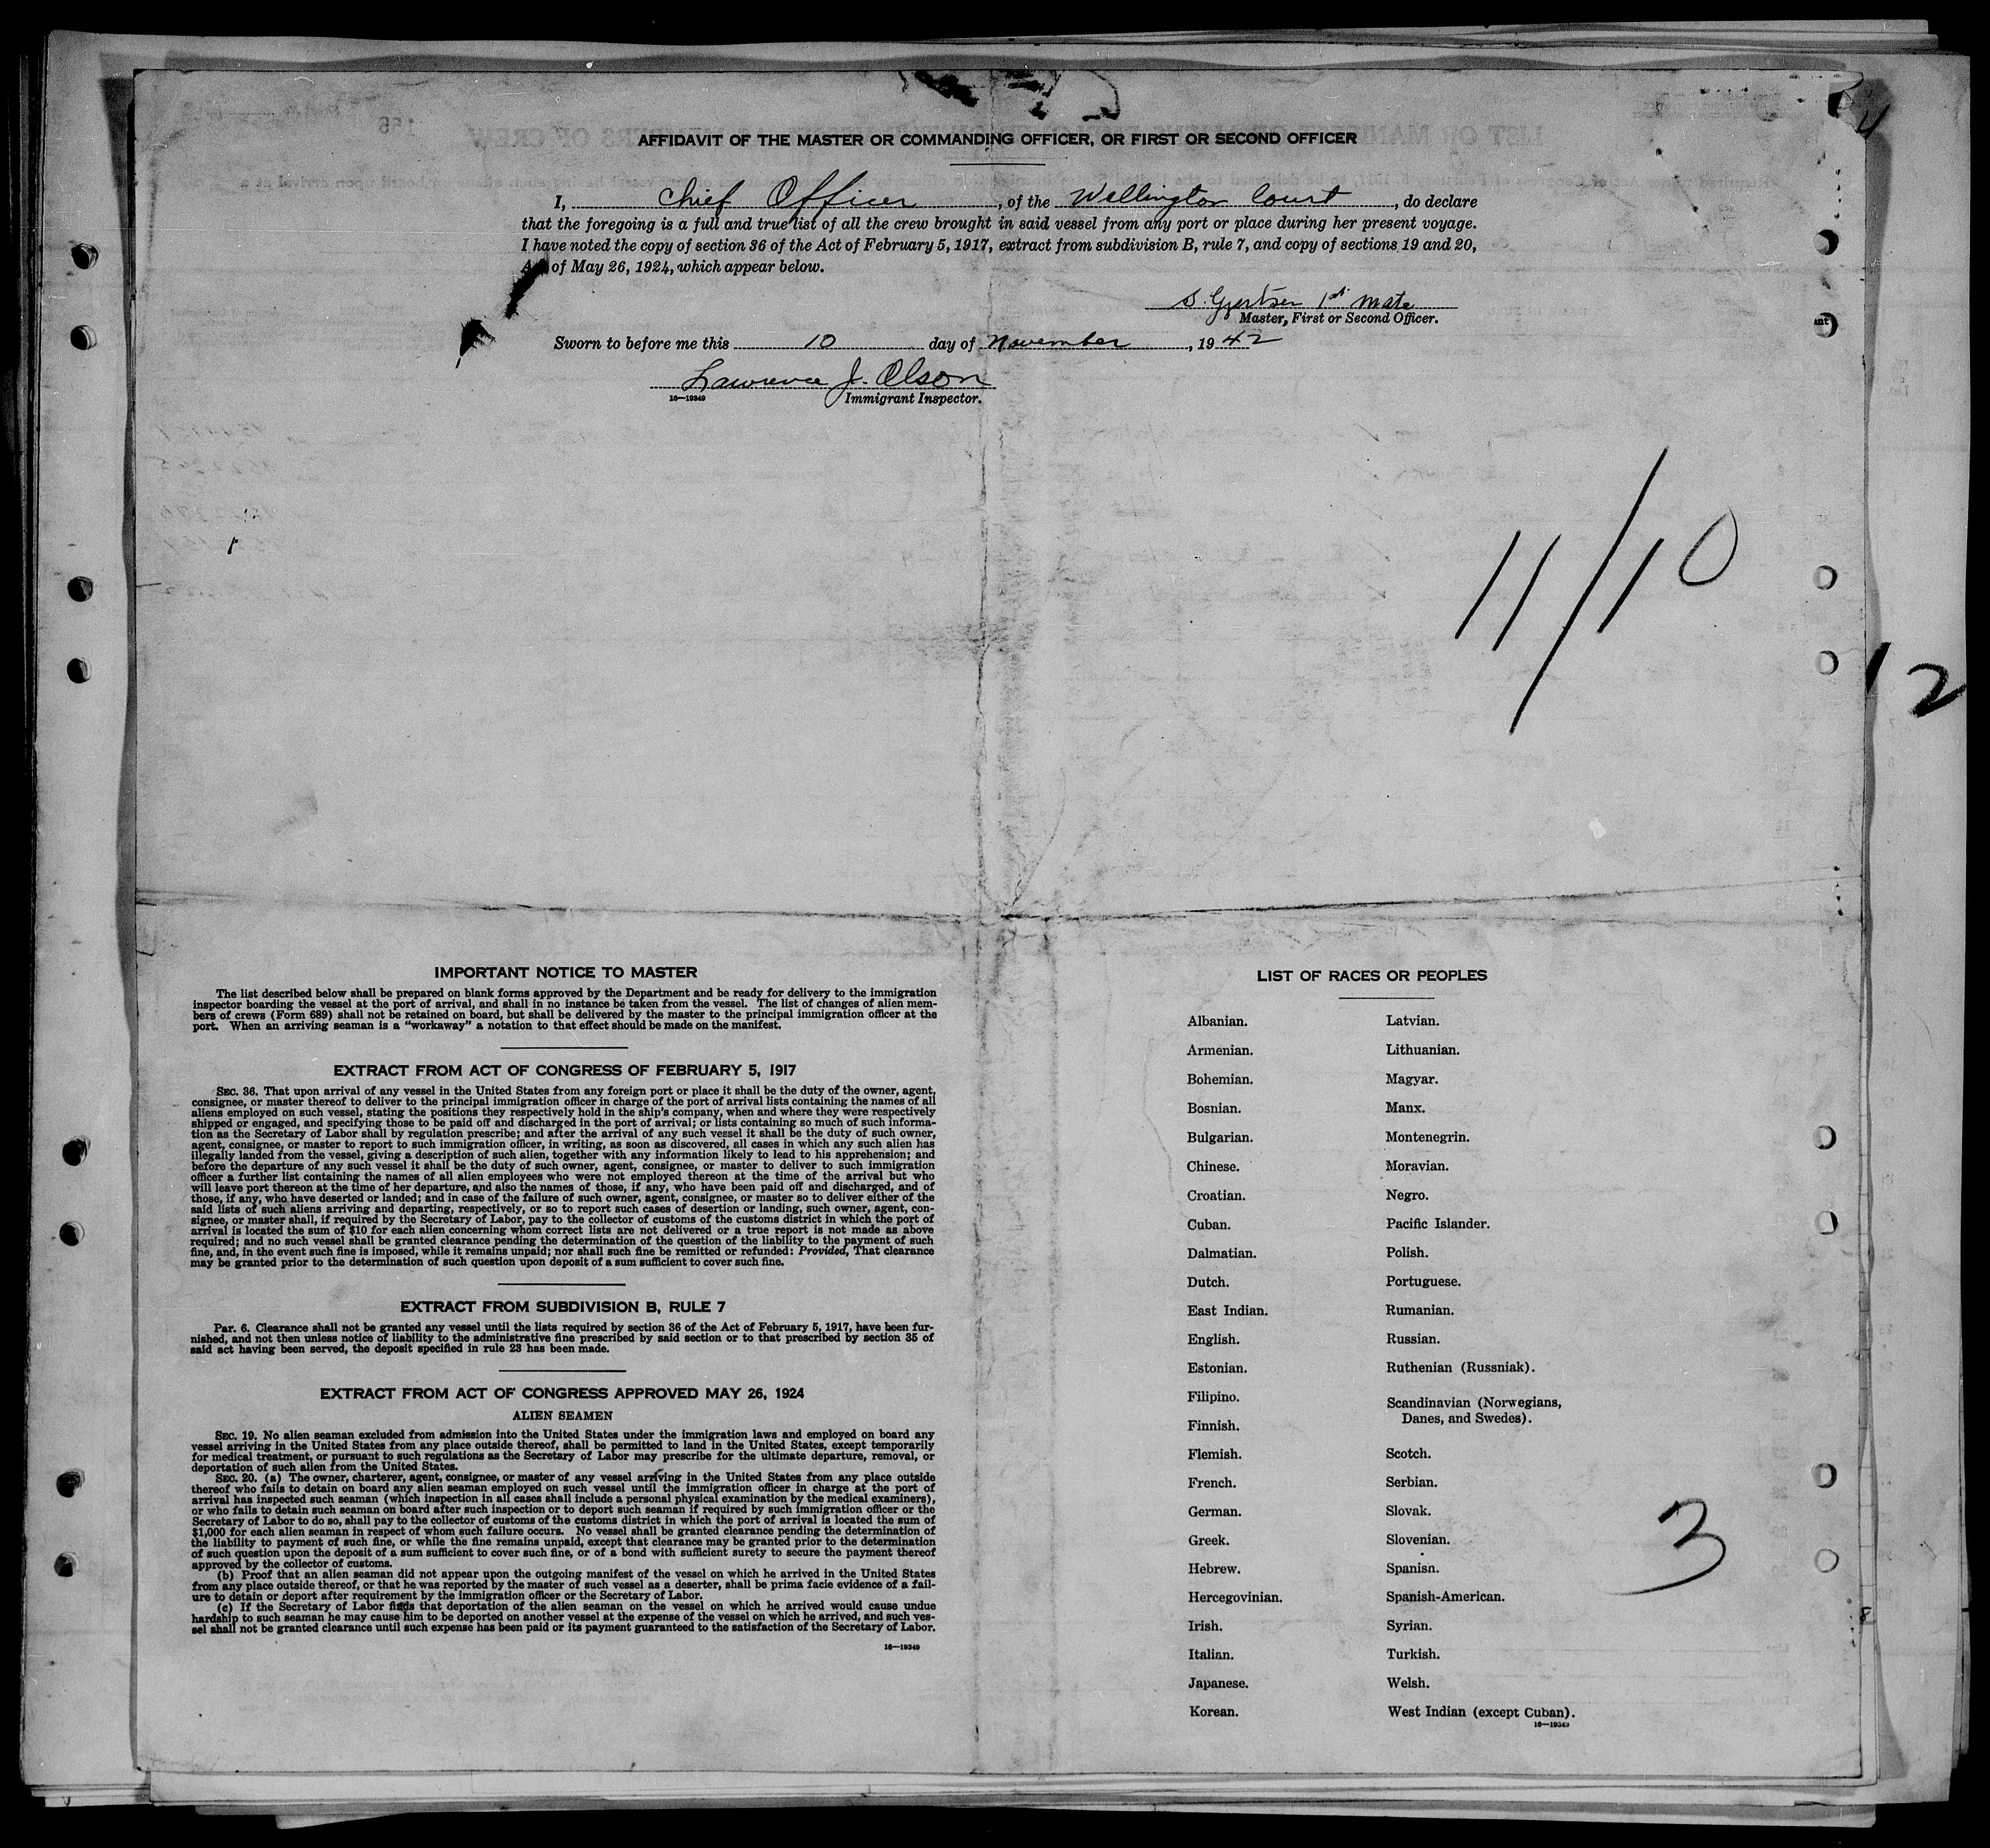 AFFIDAVIT OF THE MASTER OR COMMANDING OFFICER, OR FIRST OR SECOND OFFICER
I, Chief Officer, of the Wellington Court, do declare
that the foregoing is a full and true list of all the crew brought in said vessel from any port or place during her present voyage.
I have noted the copy of section 36 of the Act of February 5, 1917, extract from subdivision B, rule 7, and copy of sections 19 and 20,
of May 26, 1924, which appear below.
S. Gjertsen 1st Mate
Master, First or Second Officer.
Sworn to before me this 10 day of November, 1942
Lawrence J. Olson
16—19349 Immigrant Inspector.
11/10
12
IMPORTANT NOTICE TO MASTER
The list described below shall be prepared on blank forms approved by the Department and be ready for delivery to the immigration
inspector boarding the vessel at the port of arrival, and shall in no instance be taken from the vessel. The list of changes of alien mem-
bers of crews (Form 689) shall not be retained on board, but shall be delivered by the master to the principal immigration officer at the
port. When an arriving seaman is a "workaway" a notation to that effect should be made on the manifest.
EXTRACT FROM ACT OF CONGRESS OF FEBRUARY 5, 1917
SEC. 36. That upon arrival of any vessel in the United States from any foreign port or place it shall be the duty of the owner, agent,
consignee, or master thereof to deliver to the principal immigration officer in charge of the port of arrival lists containing the names of all
aliens employed on such vessel, stating the positions they respectively hold in the ship's company, when and where they were respectively
shipped or engaged, and specifying those to be paid off and discharged in the port of arrival; or lists containing so much of such informa-
tion as the Secretary of Labor shall by regulation prescribe; and after the arrival of any such vessel it shall be the duty of such owner,
agent, consignee, or master to report to such immigration officer, in writing, as soon as discovered, all cases in which any such alien has
illegally landed from the vessel, giving a description of such alien, together with any information likely to lead to his apprehension; and
before the departure of any such vessel it shall be the duty of such owner, agent, consignee, or master to deliver to such immigration
officer a further list containing the names of all alien employees who were not employed thereon at the time of the arrival but who
will leave port thereon at the time of her departure, and also the names of those, if any, who have been paid off and discharged, and of
those, if any, who have deserted or landed; and in case of the failure of such owner, agent, consignee, or master so to deliver either of the
said lists of such aliens arriving and departing, respectively, or so to report such cases of desertion or landing, such owner, agent, con-
signee, or master shall, if required by the Secretary of Labor, pay to the collector of customs of the customs district in which the port of
arrival is located the sum of $10 for each alien concerning whom correct lists are not delivered or a true report is not made as above
required; and no such vessel shall be granted clearance pending the determination of the question of the liability to the payment of such
fine, and, in the event such fine is imposed, while it remains unpaid; nor shall such fine be remitted or refunded: Provided, That clearance
may be granted prior to the determination of such question upon deposit of a sum sufficient to cover such fine.
EXTRACT FROM SUBDIVISION B, RULE 7
PAR. 6. Clearance shall not be granted any vessel until the lists required by section 36 of the Act of February 5, 1917, have been fur-
nished, and not then unless notice of liability to the administrative fine prescribed by said section or to that prescribed by section 35 of
said act having been served, the deposit specified in rule 23 has been made.
EXTRACT FROM ACT OF CONGRESS APPROVED MAY 26, 1924
ALIEN SEAMEN
SEC. 19. No alien seaman excluded from admission into the United States under the immigration laws and employed on board any
vessel arriving in the United States from any place outside thereof, shall be permitted to land in the United States, except temporarily
for medical treatment, or pursuant to such regulations as the Secretary of Labor may prescribe for the ultimate departure, removal, or
deportation of such alien from the United States.
SEC. 20. (a) The owner, charterer, agent, consignee, or master of any vessel arriving in the United States from any place outside
thereof who fails to detain on board any alien seaman employed on such vessel until the immigration officer in charge at the port of
arrival has inspected such seaman (which inspection in all cases shall include a personal physical examination by the medical examiners),
or who fails to detain such seaman on board after such inspection or to deport such seaman if required by such immigration officer or the
Secretary of Labor to do so, shall pay to the collector of customs of the customs district in which the port of arrival is located the sum of
$1,000 for each alien seaman in respect of whom such failure occurs. No vessel shall be granted clearance pending the determination of
the liability to payment of such fine, or while the fine remains unpaid, except that clearance may be granted prior to the determination
of such question upon the deposit of a sum sufficient to cover such fine, or of a bond with sufficient surety to secure the payment thereof
approved by the collector of customs.
(b) Proof that an alien seaman did not appear upon the outgoing manifest of the vessel on which he arrived in the United States
from any place outside thereof, or that he was reported by the master of such vessel as a deserter, shall be prima facie evidence of a fail-
ure to detain or deport after requirement by the immigration officer or the Secretary of Labor.
(c) If the Secretary of Labor finds that deportation of the alien seaman on the vessel on which he arrived would cause undue
hardship to such seaman he may cause him to be deported on another vessel at the expense of the vessel on which he arrived, and such ves-
sel shall not be granted clearance until such expense has been paid or its payment guaranteed to the satisfaction of the Secretary of Labor.
16—19349
LIST OF RACES OR PEOPLES
Albanian. Latvian.
Armenian. Lithuanian.
Bohemian. Magyar.
Bosnian. Manx.
Bulgarian. Montenegrin.
Chinese. Moravian.
Croatian. Negro.
Cuban. Pacific Islander.
Dalmatian. Polish.
Dutch. Portuguese.
East Indian. Rumanian.
English. Russian.
Estonian. Ruthenian (Russniak).
Filipino. Scandinavian (Norwegians,
Finnish. Danes, and Swedes).
Flemish. Scotch.
French. Serbian.
German. Slovak.
Greek. Slovenian.
Hebrew. Spanish.
Hercegovinian. Spanish-American.
Irish. Syrian.
Italian. Turkish.
Japanese. Welsh.
Korean. West Indian (except Cuban).
16—19349
3